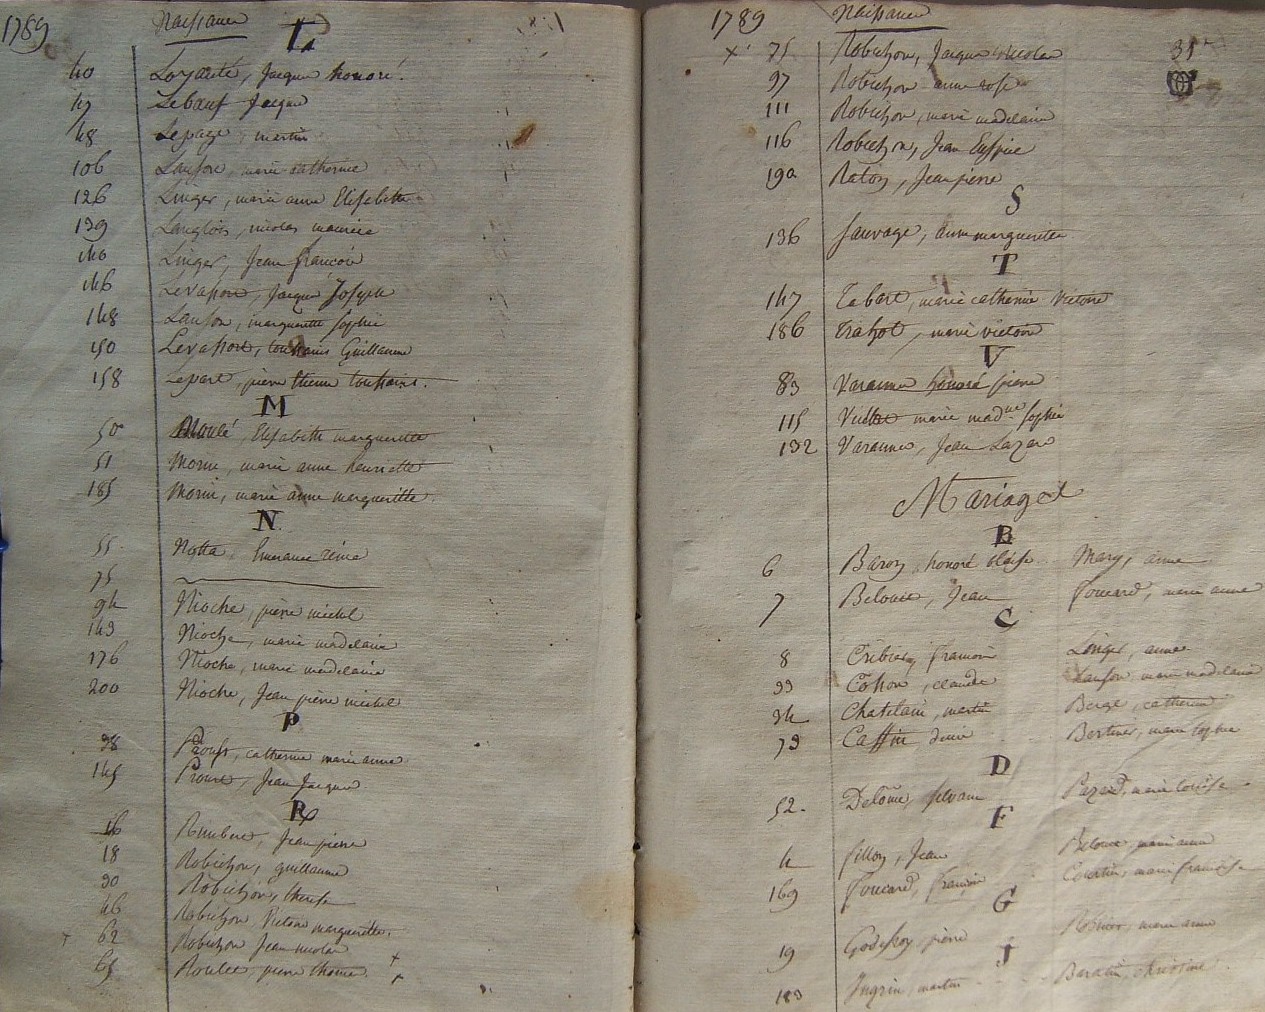 1789 Naissance
L
40 Loyauté, Jacque honoré.
47 Lebœuf Jacque
48 Lepage, martin
106 Lanson, marie catherine
126 Linger, marie anne Elisabette
139 Langlois, nicolas maurice
140 Linger, Jean françois
146 Levasson, Jacque Joseph
148 Lanson, margueritte sophie
150 Levasson, toussains Guillaume
158 Lepart, pierre Etienne toussains.
M
50 Moulé, Elisabette margueritte
51 Morin, marie anne henriette
185 Morin, marie anne margueritte.
N
55 Notta, Emerance reine
75
94 Nioche, pierre michel
143 Nioche, marie madelaine
176 Nioche, marie madelaine
200 Nioche, Jean pierre michel
P
38 catherine marie anne
145 Proust, Jean Jacques
R
16 Rimbert, Jean pierre
18 Robichon, guillaume
30 Robichon, therese
46 Robichon Victoire margueritte.
+ 62 Robichon Jean nicolas +
65 pierre thomas. +
1789 Naissance
x 75 Robichon, Jacque nicolas 35
97 Robichon anne rose
111 Robichon, marie madelaine
116 Robichon, Jean
190 Raton, Jean pierre
S
136 Sauvage, anne margueritte
T
147 Tabart, marie catherine Victoire
186 marie victoire
V
83 Varanne honoré pierre
115 marie mad.ne sophie
132 Varanne, Jean Lazare
Mariages
B
6 Baron, honoré blaise Mary, anne
7 Belouet, Jean Foucard, marie anne
C
8 françois Linger, anne
33 Cosson, claude Lanson marie madelaine
34 Chatelain, martin Berge, catherine
73 Caffin marie sophie
D
52. Delôme, silvain marie louise
F
4 fillon, Jean Belouet, marie anne
169 Foucard, françois Courtin, marie françoise
G
19 Godefroy, pierre marie anne
J
183 Jngrin, martin Baratin, christine